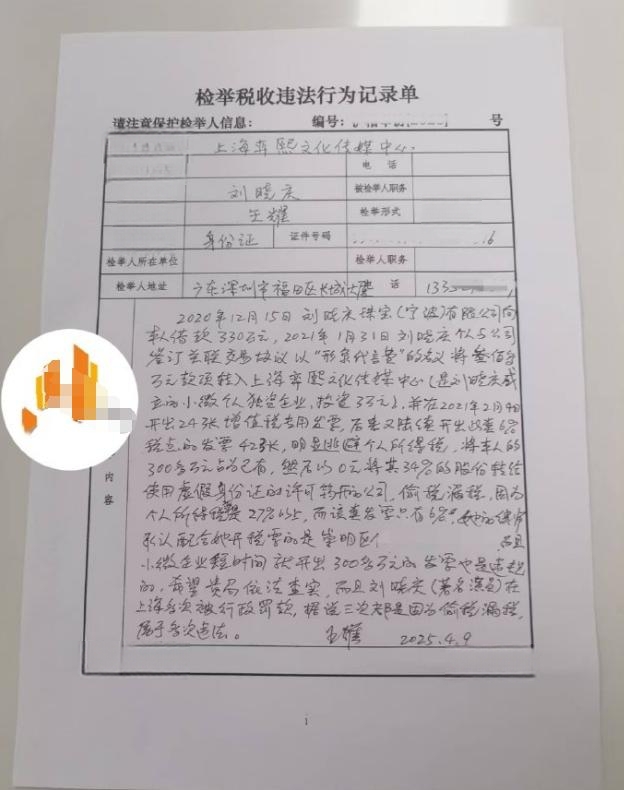 检举税收违法行为记录单
请注意保护检举人信息： 编号： 号
上海弈熙文化传媒中心.
电 话
刘晓庆 被检举人职务
王耀 检举形式
身份证 证件号码 16
检举人所在单位 检举人职务
检举人地址 广东深圳市福田区长城大厦 话 133
2020年12月15日刘晓庆珠宝(宁波)有限公司向
本人借款330万元，2021年1月31日刘晓庆个人与公司
签订关联交易协议以“形象代言费”的名义将叁佰多
万元款项转入上海弈熙文化传媒中心(是刘晓庆成
立的小微个人独资企业，投资3万元)，并在2021年2月4日
开出24张增值税专用发票，后来又陆续开出6%
税点的发票42张，明显逃避个人所得税，将本人的
300多万元占为己有，然后以0元将其34%的股份转给
使用虚假身份证的许可 的公司，偷税漏税，因为
个人所得税 27% ，而该类发票只有6%，她的律师
承认配合她开税票的是崇明区 而且
小微企业短时间就开出300多万元的发票也是违规
的，希望贵局依法查实，而且刘晓庆(著名演员)在
上海多次被行政罚款，据说三次都是因为偷税漏税，
属于多次违法。 王耀 2025.4.9
内
容
1